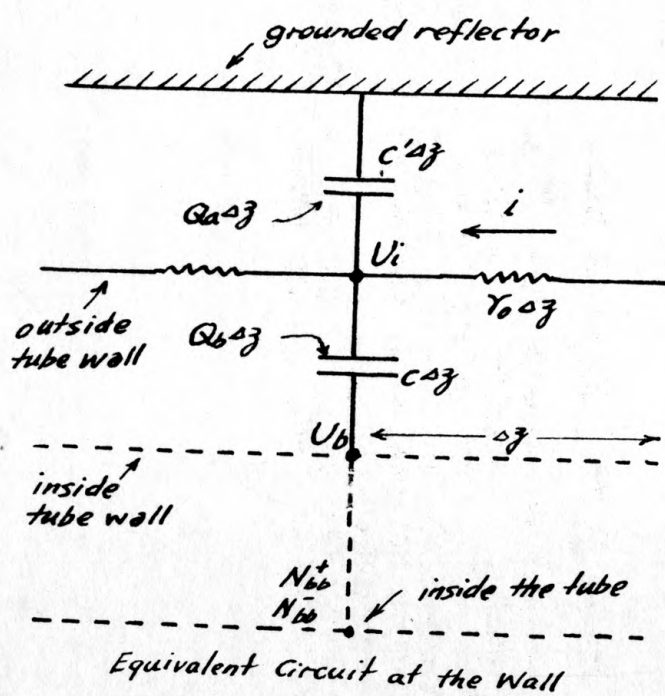 grounded reflector
C'Δz
QaΔz
i
Ui
γ₀Δz
outside
tube wall
QbΔz
CΔz
Ub
Δz
inside
tube wall
N⁺bb
N⁻bb
inside the tube
Equivalent Circuit at the Wall